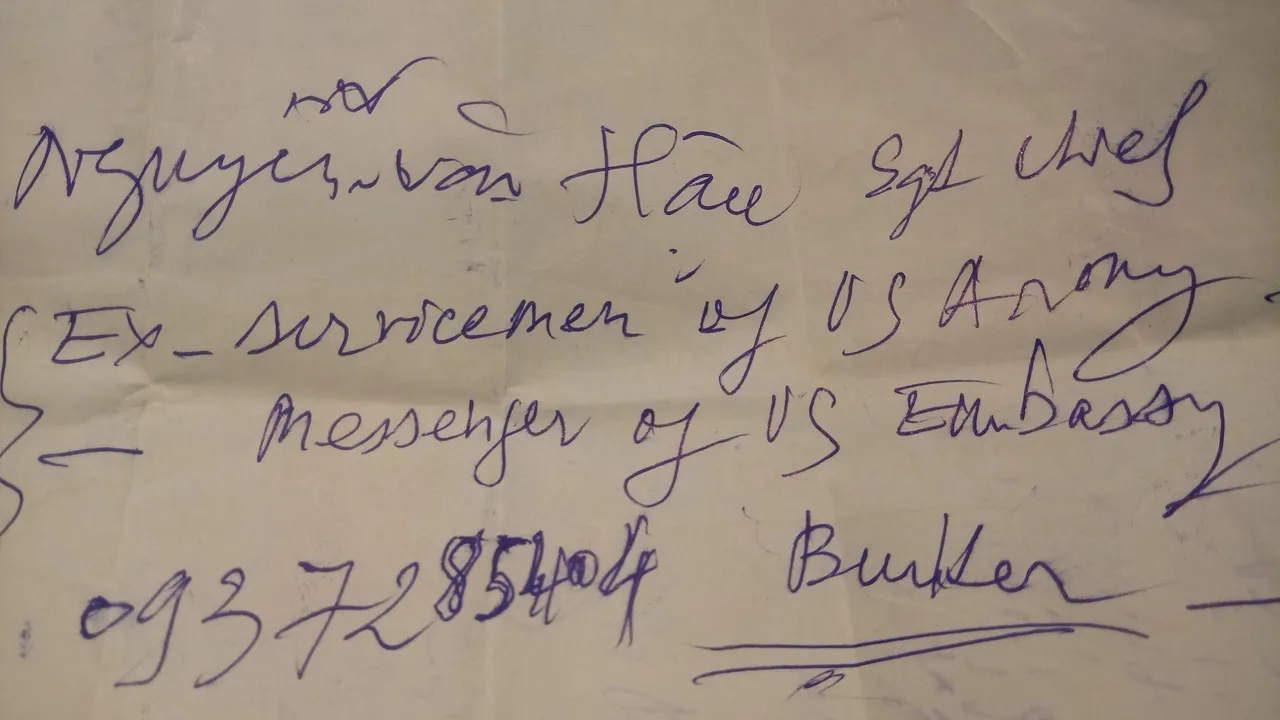 Nguyễn Văn Hâu Sgt Chief
Ex-servicemen of US Army
— Messenger of US Embassy
0937285404 Bunker